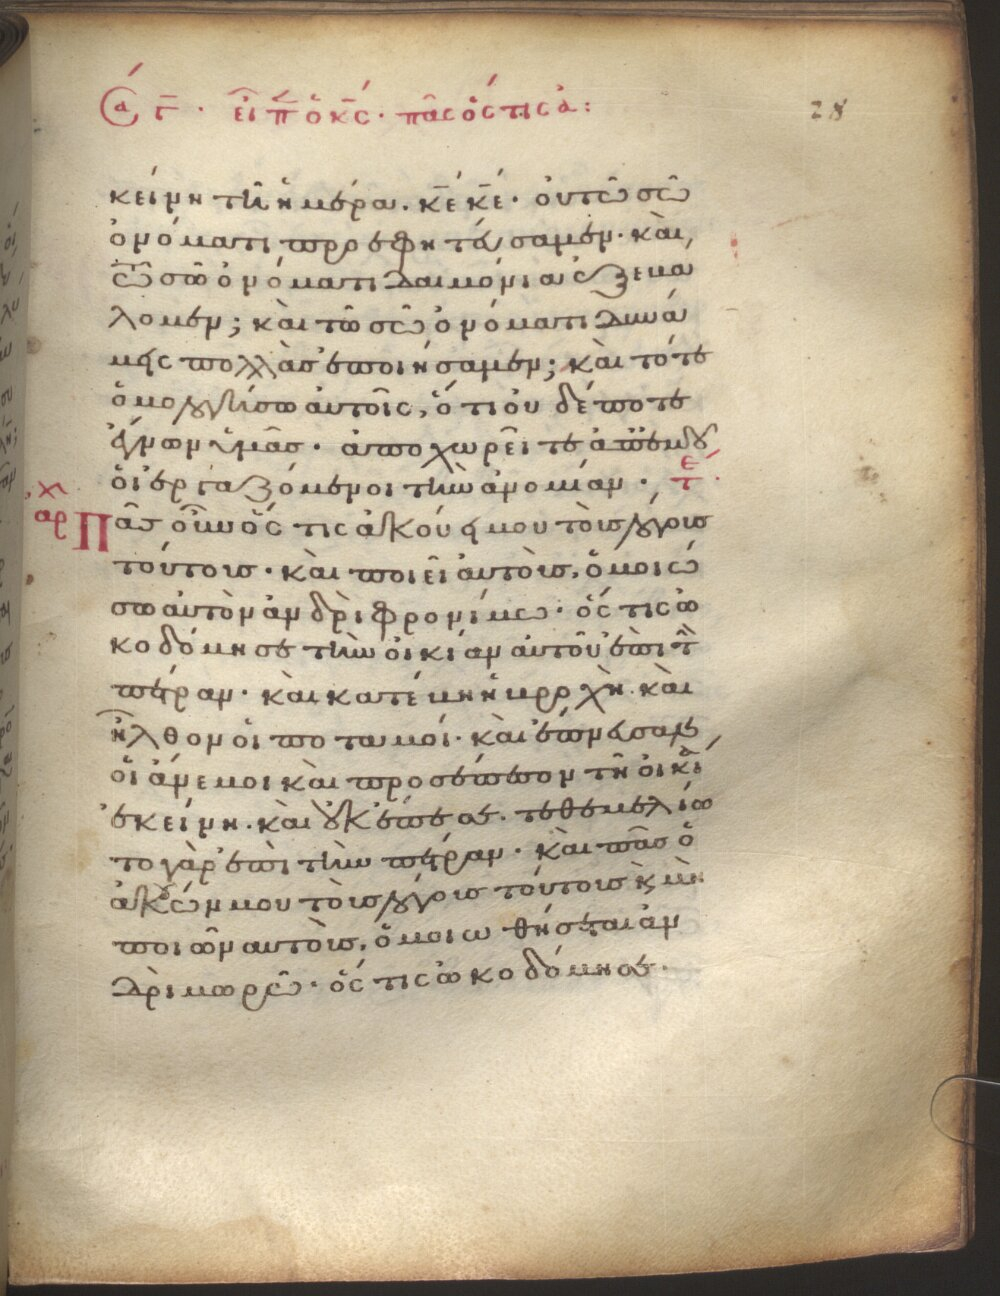 ϛα γ · εἶ π ὁ κς · πᾶς ὅς τις ἀ:
28
κείνη τῆ ἡμέρα. κε κε · οὐ τῶ σῶ
ὀνόματι προεφητεύσαμεν· καὶ
τῶ σῶ ὀνόματι δαιμόνια ἐξεβά
λομεν; καὶ τῶ σῶ ὀνόματι δυνά
μεις πολλὰς ἐποιήσαμεν; καὶ τότε
ὁμολογήσω αὐτοῖς, ὅτι οὐδέποτε
ἔγνων ὑμᾶς · ἀποχωρεῖτε ἀπ ἐμοῦ
οἱ ἐργαζόμενοι τὴν ἀνομίαν · τε
αρχ Πᾶς οὖν ὅς τις ἀκούει μου τοὺς λόγους
τούτους · καὶ ποιεῖ αὐτοὺς, ὁμοιώ
σω αὐτὸν ἀνδρὶ φρονίμω · ὅς τις ὠ
κοδόμησε τὴν οἰκίαν αὐτοῦ ἐπὶ τ
πέτραν · καὶ κατέβη ἡ βροχὴ· καὶ
ἦλθον οἱ ποταμοί · καὶ ἔπνευσαν
οἱ ἄνεμοι καὶ προσέπεσον τῆ οἰκί
ἐκείνη · καὶ οὐκ ἔπεσε · τεθεμελίω
το γὰρ ἐπὶ τὴν πέτραν · καὶ πᾶς ὁ
ἀκούων μου τοὺς λόγους τούτους κ μὴ
ποιῶν αὐτοὺς, ὁμοιωθήσεται ἀν
δρὶ μωρῶ · ὅς τις ὠκοδόμησε ·